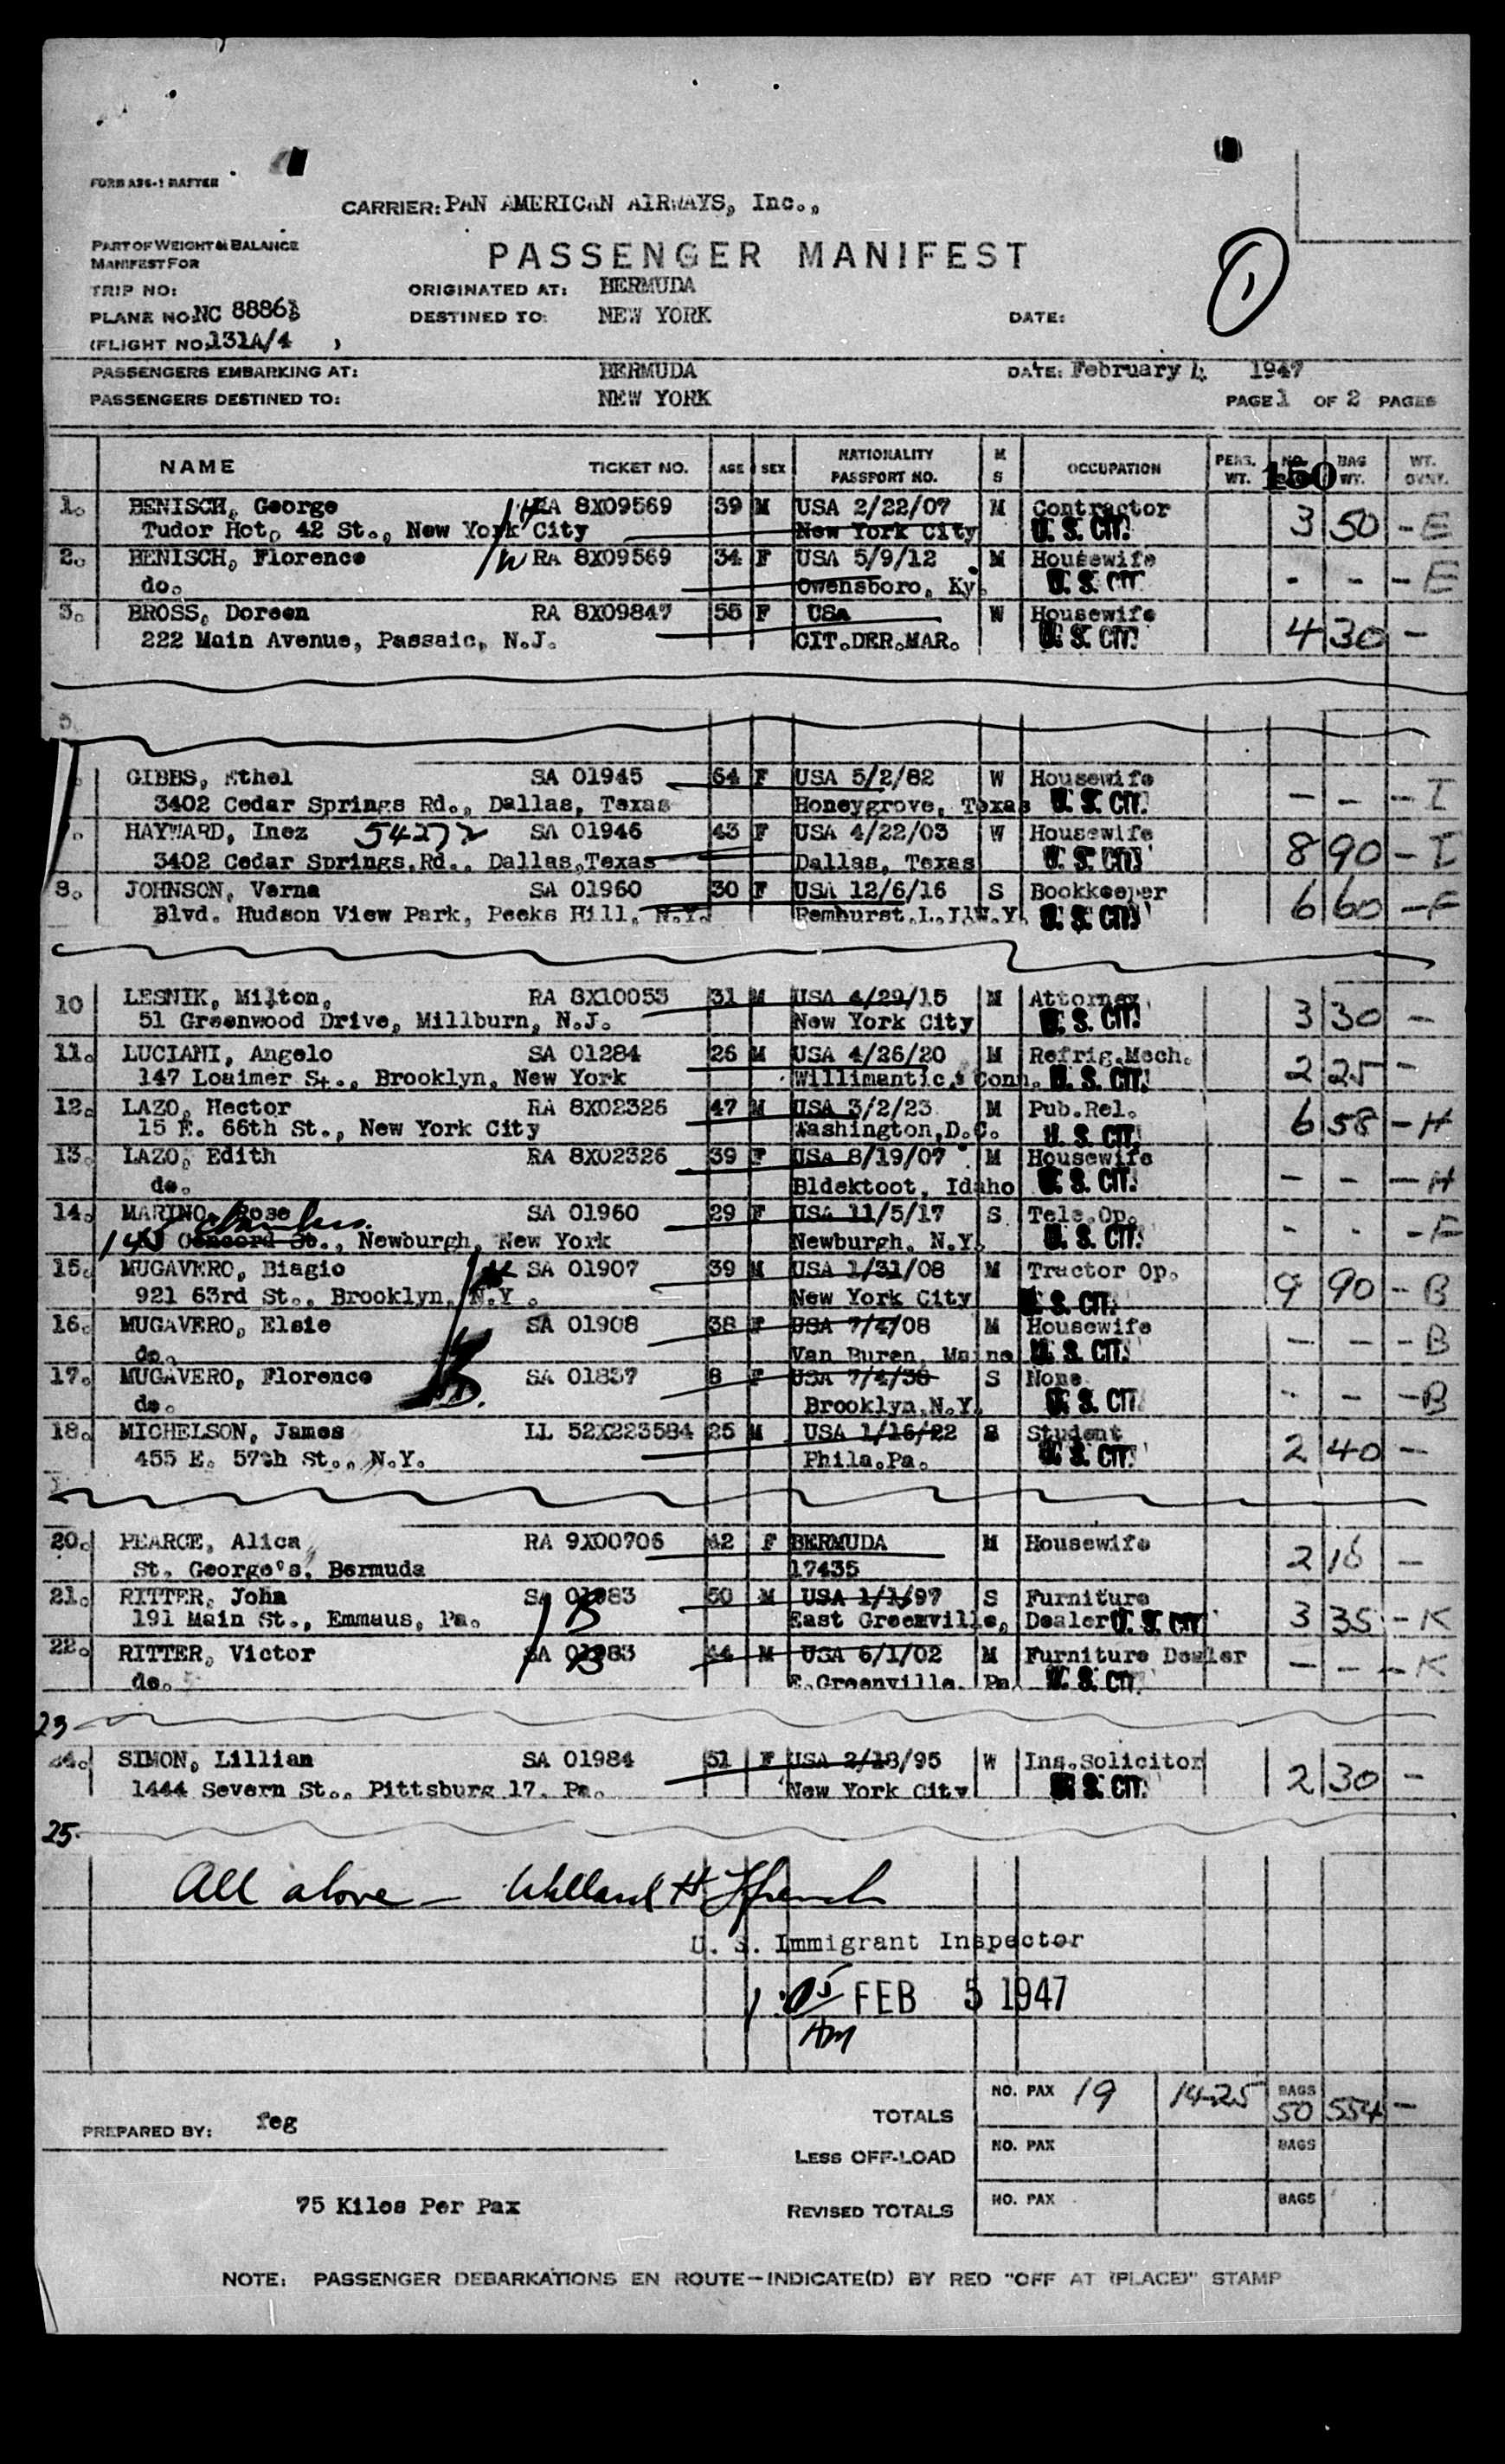 FORM A36-1 MASTER
CARRIER: PAN AMERICAN AIRWAYS, Inc.,
PART OF WEIGHT & BALANCE
MANIFEST FOR
PASSENGER MANIFEST
1
TRIP NO: ORIGINATED AT: BERMUDA
PLANE NO: NC 88868 DESTINED TO: NEW YORK DATE:
(FLIGHT NO. 131A/4 )
PASSENGERS EMBARKING AT: BERMUDA DATE: February 4, 1947
PASSENGERS DESTINED TO: NEW YORK PAGE 1 OF 2 PAGES
NAME TICKET NO. AGE SEX NATIONALITY PASSPORT NO. M S OCCUPATION PERS. WT. NO. 150 BAG WT. WT. OVNT.
1. BENISCH, George RA 8X09569 39 M USA 2/22/07 M Contractor 3 50 - E
Tudor Hot, 42 St., New York City New York City U. S. CIT.
2. BENISCH, Florence RA 8X09569 34 F USA 5/9/12 M Housewife - - - E
do. Owensboro, Ky. U. S. CIT.
3. BROSS, Doreen RA 8X09847 55 F USA W Housewife 4 30 -
222 Main Avenue, Passaic, N.J. CIT.DER.MAR. U. S. CIT.
5.
GIBBS, Ethel SA 01945 64 F USA 5/2/82 W Housewife - - - I
3402 Cedar Springs Rd., Dallas, Texas Honeygrove, Texas U. S. CIT.
HAYWARD, Inez 54272 SA 01946 43 F USA 4/22/03 W Housewife 8 90 - I
3402 Cedar Springs.Rd., Dallas,Texas Dallas, Texas U. S. CIT.
8. JOHNSON, Verna SA 01960 30 F USA 12/6/16 S Bookkeeper 6 60 - F
Blvd. Hudson View Park, Peeks Hill, N.Y. U. S. CIT.
10 LESNIK, Milton, RA 8X10053 31 M USA 4/29/15 M Attorney 3 30 -
51 Greenwood Drive, Millburn, N.J. New York City U. S. CIT.
11. LUCIANI, Angelo SA 01284 26 M USA 4/26/20 M Refrig.Mech. 2 25 -
147 Loaimer St., Brooklyn, New York Willimantic, Conn. U. S. CIT.
12. LAZO, Hector RA 8X02326 47 M USA 3/2/23 M Pub.Rel. 6 58 - H
15 E. 66th St., New York City Washington,D.C. U. S. CIT.
13. LAZO, Edith RA 8X02326 39 F USA 8/19/07 M Housewife - - - H
do. Bldektoot, Idaho U. S. CIT.
14. MARINO, Rose SA 01960 29 F USA 11/5/17 S Tele.Op. - - - F
Concord St., Newburgh, New York Newburgh, N.Y. U. S. CIT.
15. MUGAVERO, Biagio SA 01907 39 M USA 1/31/08 M Tractor Op. 9 90 - B
921 63rd St., Brooklyn, N.Y. New York City U. S. CIT.
16. MUGAVERO, Elsie SA 01908 38 F USA 7/4/08 M Housewife - - - B
do. Van Buren, Maine U. S. CIT.
17. MUGAVERO, Florence SA 01837 8 F USA 7/4/38 S None - - - B
do. Brooklyn,N.Y. U. S. CIT.
18. MICHELSON, James LL 52X223584 25 M USA 1/16/22 S Student 2 40 -
455 E. 57th St., N.Y. Phila.Pa. U. S. CIT.
20. PEARCE, Alica RA 9X00706 42 F BERMUDA M Housewife 2 16 -
St. George's, Bermuda 17435
21. RITTER, John SA 01983 50 M USA 1/1/97 S Furniture 3 35 - K
191 Main St., Emmaus, Pa. East Greenville, Dealer U. S. CIT.
22. RITTER, Victor SA 01983 44 M USA 6/1/02 M Furniture Dealer - - - K
do. E.Greenville, Pa. U. S. CIT.
23
24. SIMON, Lillian SA 01984 51 F USA 2/18/95 W Ins.Solicitor 2 30 -
1444 Severn St., Pittsburg 17, Pa. New York City U. S. CIT.
25
All above — Willard H
U. S. Immigrant Inspector
1:05 FEB 5 1947
AM
TOTALS NO. PAX 19 1425 BAGS 50 554 -
PREPARED BY: feg
LESS OFF-LOAD NO. PAX BAGS
75 Kilos Per Pax
REVISED TOTALS NO. PAX BAGS
NOTE: PASSENGER DEBARKATIONS EN ROUTE—INDICATE(D) BY RED "OFF AT (PLACE)" STAMP